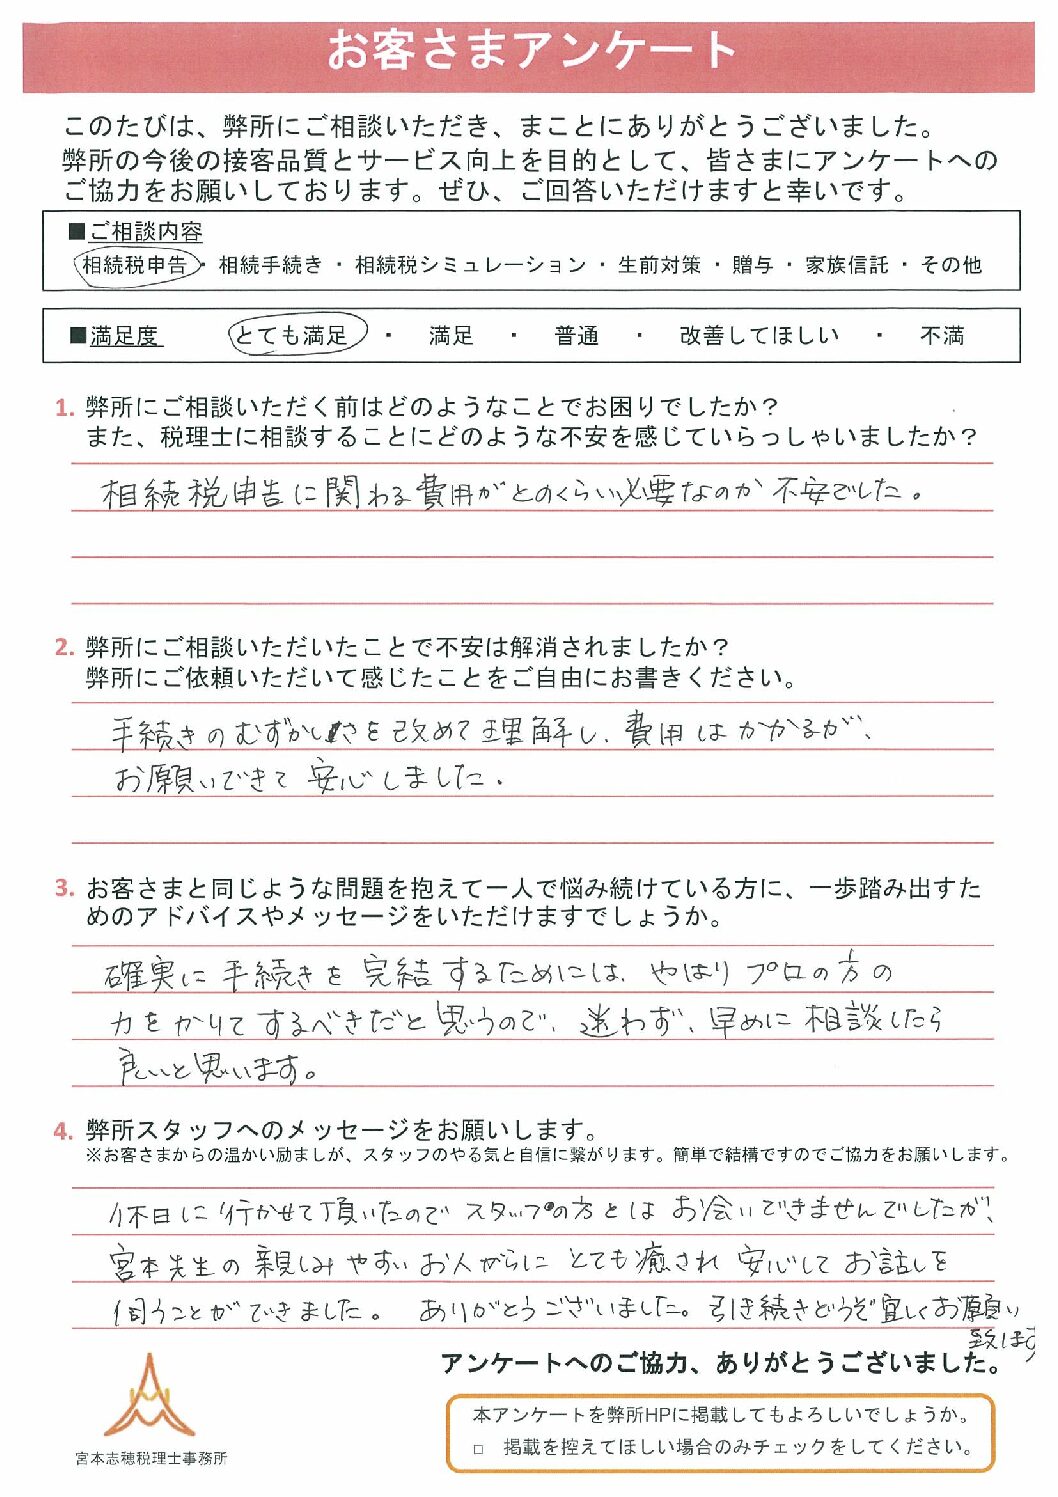 お客さまアンケート
このたびは、弊所にご相談いただき、まことにありがとうございました。
弊所の今後の接客品質とサービス向上を目的として、皆さまにアンケートへの
ご協力をお願いしております。ぜひ、ご回答いただけますと幸いです。
■ご相談内容
相続税申告・相続手続き・相続税シミュレーション・生前対策・贈与・家族信託・その他
■満足度 とても満足 ・ 満足 ・ 普通 ・ 改善してほしい ・ 不満
1. 弊所にご相談いただく前はどのようなことでお困りでしたか？
また、税理士に相談することにどのような不安を感じていらっしゃいましたか？
相続税申告に関わる費用がとのくらい必要なのか不安でした。
2. 弊所にご相談いただいたことで不安は解消されましたか？
弊所にご依頼いただいて感じたことをご自由にお書きください。
手続きのむずかしさを改めて理解し、費用はかかるが、
お願いできて安心しました。
3. お客さまと同じような問題を抱えて一人で悩み続けている方に、一歩踏み出すた
めのアドバイスやメッセージをいただけますでしょうか。
確実に手続きを完結するためには、やはりプロの方の
力をかりてするべきだと思うので、迷わず、早めに相談したら
良いと思います。
4. 弊所スタッフへのメッセージをお願いします。
※お客さまからの温かい励ましが、スタッフのやる気と自信に繋がります。簡単で結構ですのでご協力をお願いします。
休日に行かせて頂いたのでスタッフの方とはお会いできませんでしたが、
宮本先生の親しみやすいお人がらにとても癒され安心してお話しを
伺うことができました。ありがとうございました。引き続きどうぞ宜しくお願い
致します
アンケートへのご協力、ありがとうございました。
本アンケートを弊所HPに掲載してもよろしいでしょうか。
□ 掲載を控えてほしい場合のみチェックをしてください。
宮本志穂税理士事務所